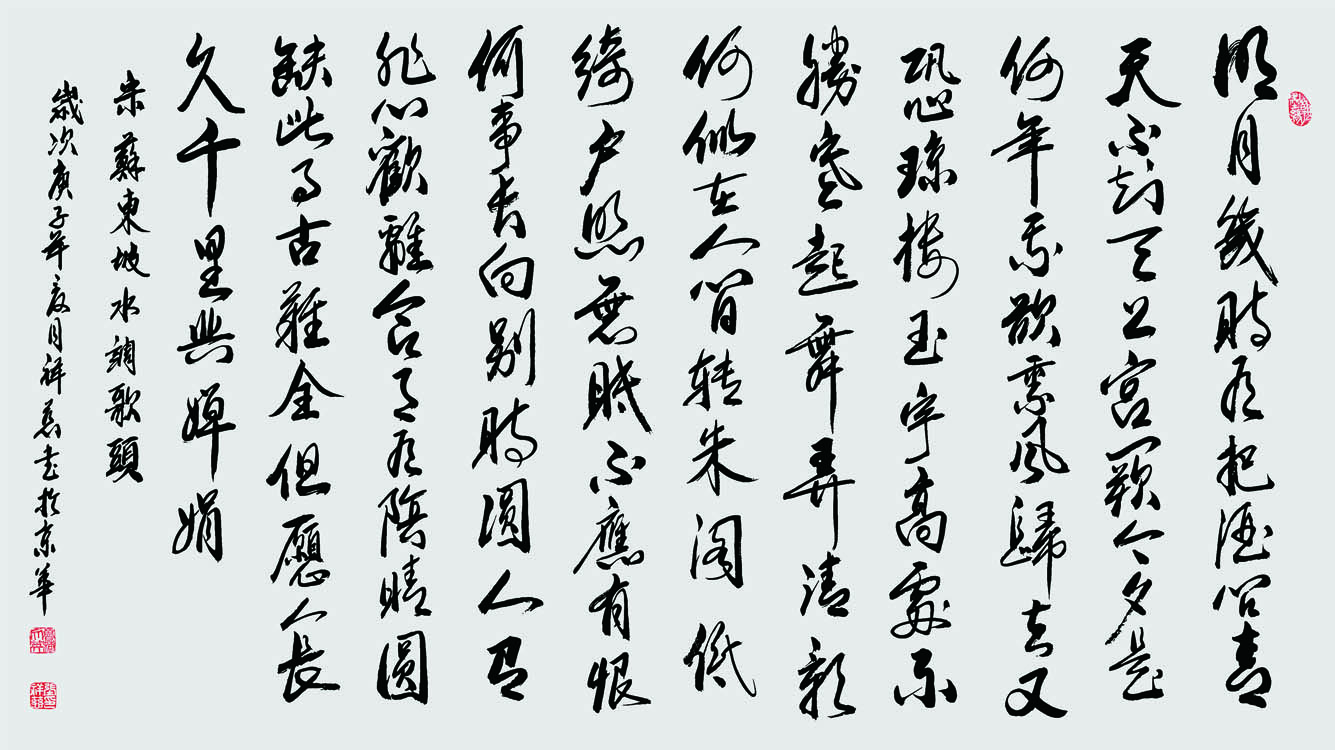 明月幾時有把酒問青
天不知天上宮闕今夕是
何年我欲乘風歸去又
恐瓊樓玉宇高處不
勝寒起舞弄清影
何似在人間转朱阁低
綺户照無眠不應有恨
何事長向别時圓人有
悲歡離合月有陰晴圓
缺此事古難全但願人長
久千里共嬋娟
宋蘇東坡水調歌頭
歲次庚子年夏月祥書於京華